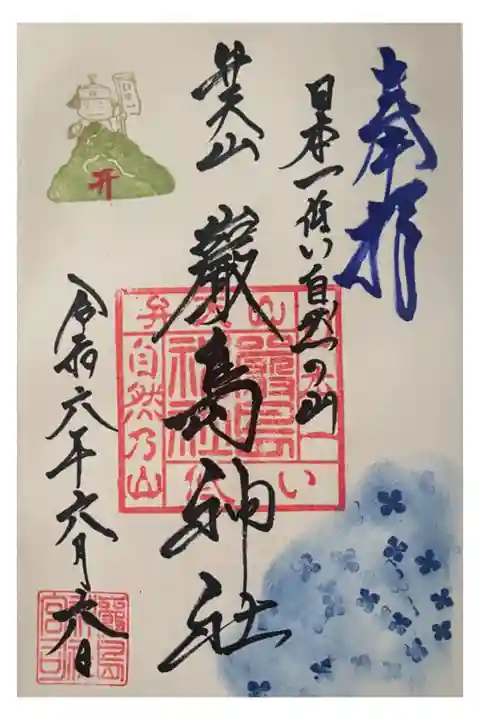 奉拝
日本一低い自然の山
弁天山
巌島神社
令和六年六月
弁天山
日本一
低い
自然乃山
嚴島神社
嚴島
神社
宮司